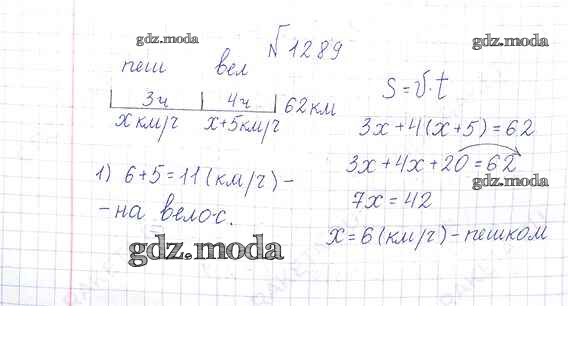 gdz.moda
№1289
gdz.moda
пеш вел
3ч 4ч 62км
х км/ч х+5км/ч
S=V·t
3х+4(х+5)=62
3х+4х+20=62
gdz.moda
7х=42
х=6(км/ч)-пешком
1) 6+5=11(км/ч)-
-на велос.
gdz.moda